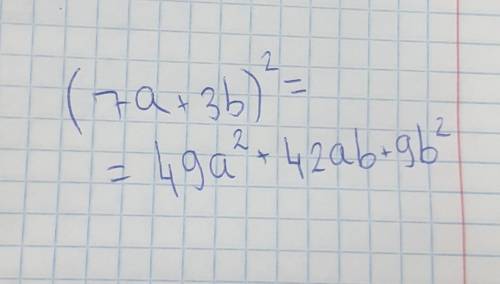 (7a+3b)²=
= 49a²+42ab+9b²